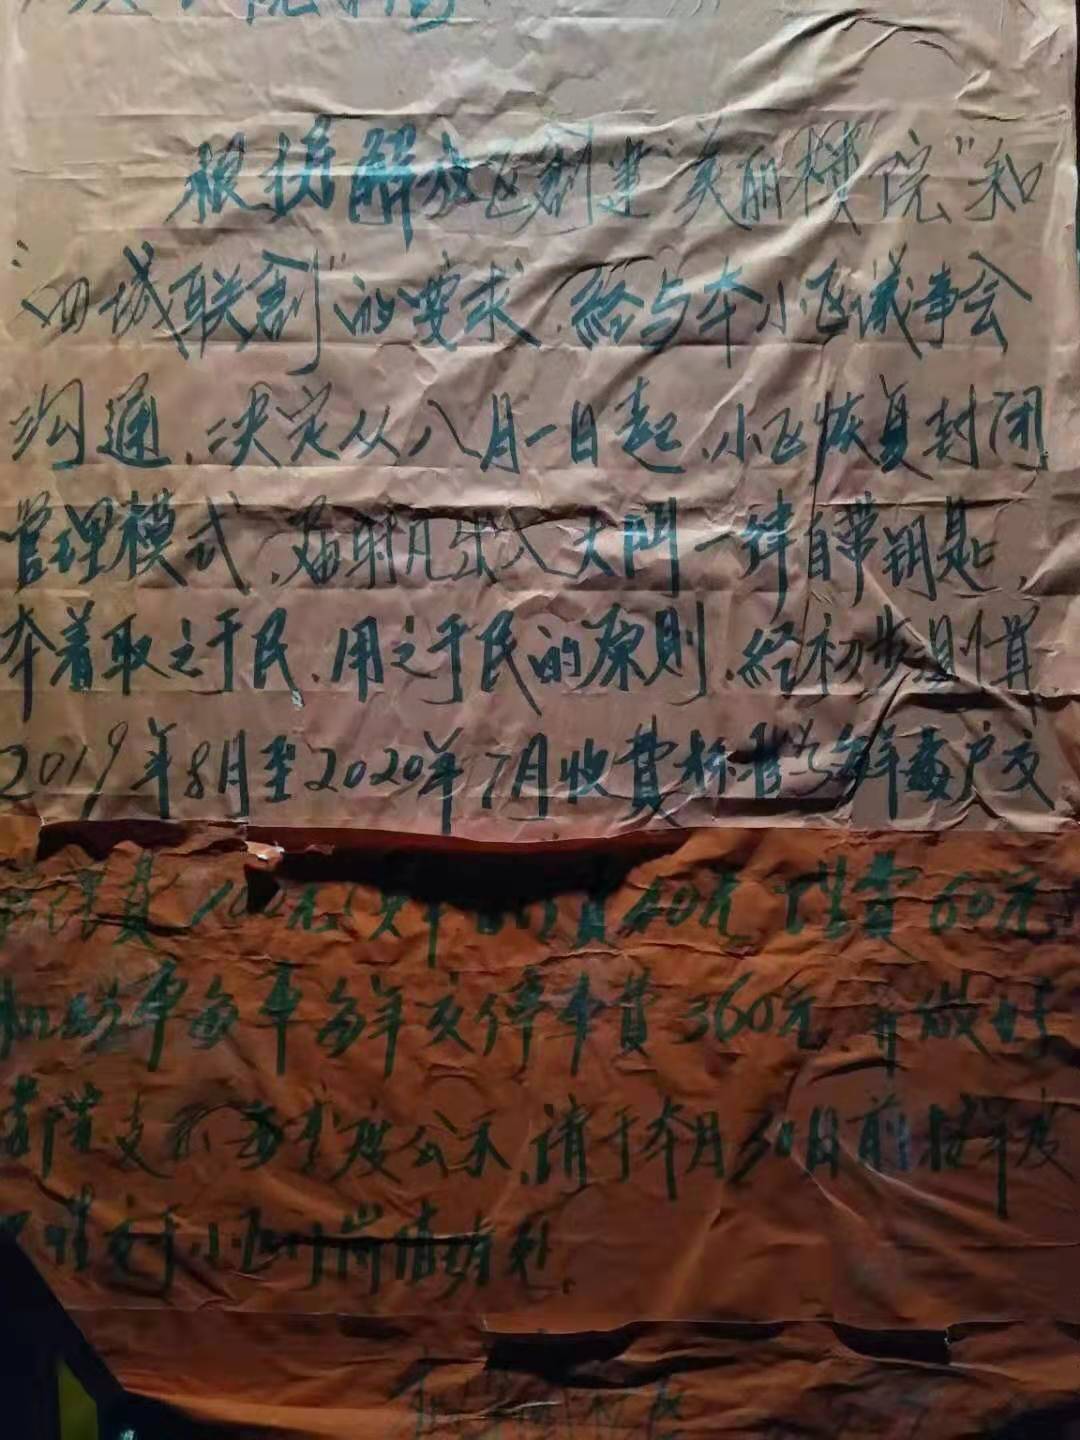 根据解放区創建"美丽楼院"和
"四城联創"的要求.给与本小区议事会
沟通.决定从八月一日起.小区恢复封闭
管理模式.出入大門一律自带钥匙.
本着取之于民.用之于民的原則.经初步測算.
2019年8月至2020年7月收费标准为每年每户交
费100元 费40元 卫生费60元
车每年交停车费360元.并做好
支 季度公示.请于本月30日前按年度
交于小区